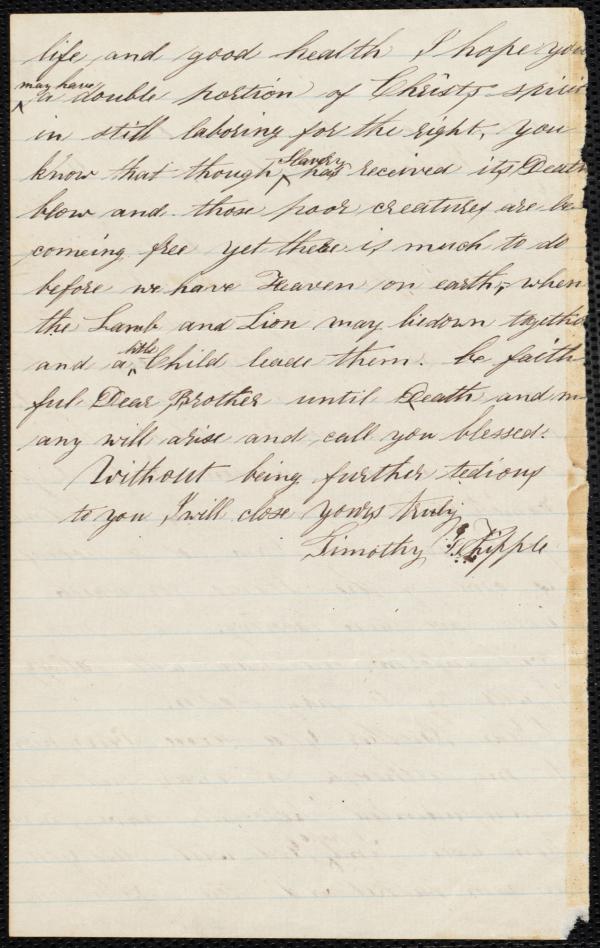 life and good health I hope you
may have
a double portion of Christs spirit
in still laboring for the right, you
know that though Slavery has received its Death
blow and those poor creatures are be
comeing free yet there is much to do
before we have Heaven on earth, when
the Lamb and Lion may liedown together
and a little Child leade them. be faith
ful Dear Brother until Death and m
any will arise and call you blessed.
Without being further tedious
to you I will close yours truly
Timothy